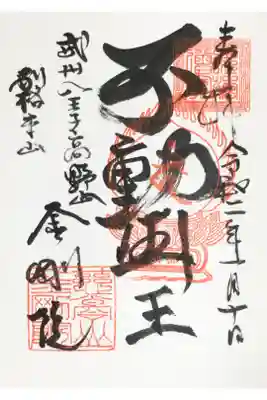 奉拝
令和二年一月十日
不動明王
武州八王子高野山
金剛院
別格本山